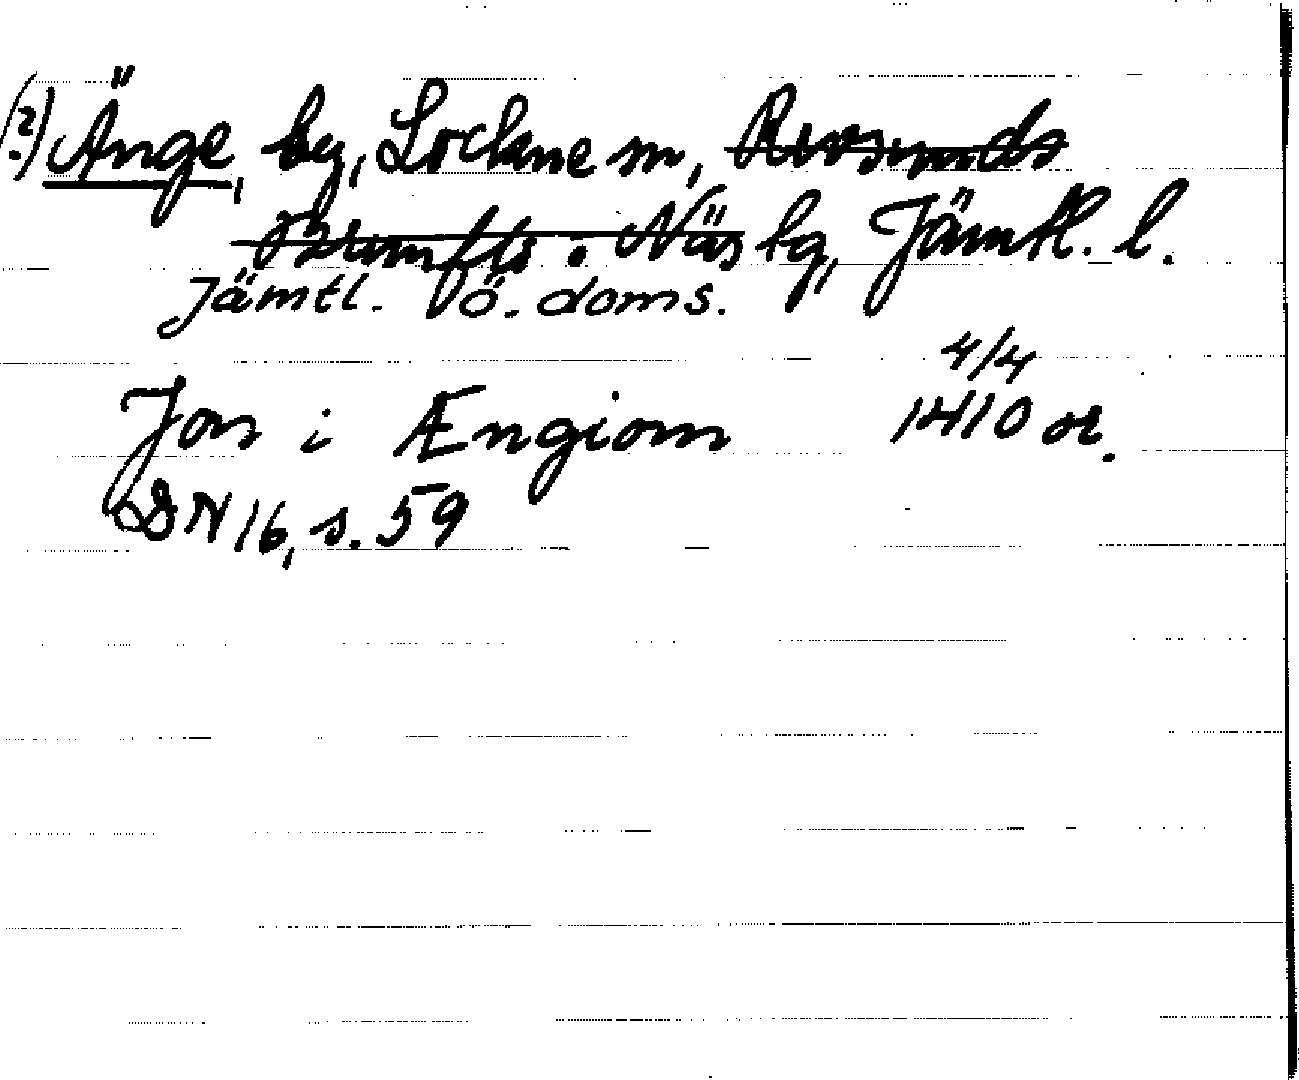 (?) Änge, by, Lockne sn, Revsunds
Brunflo o. Näs tg, Jämtl. l.
Jämtl. ö. doms.
4/4
Jon i Ængiom 1410 or.
DN 16, s. 59